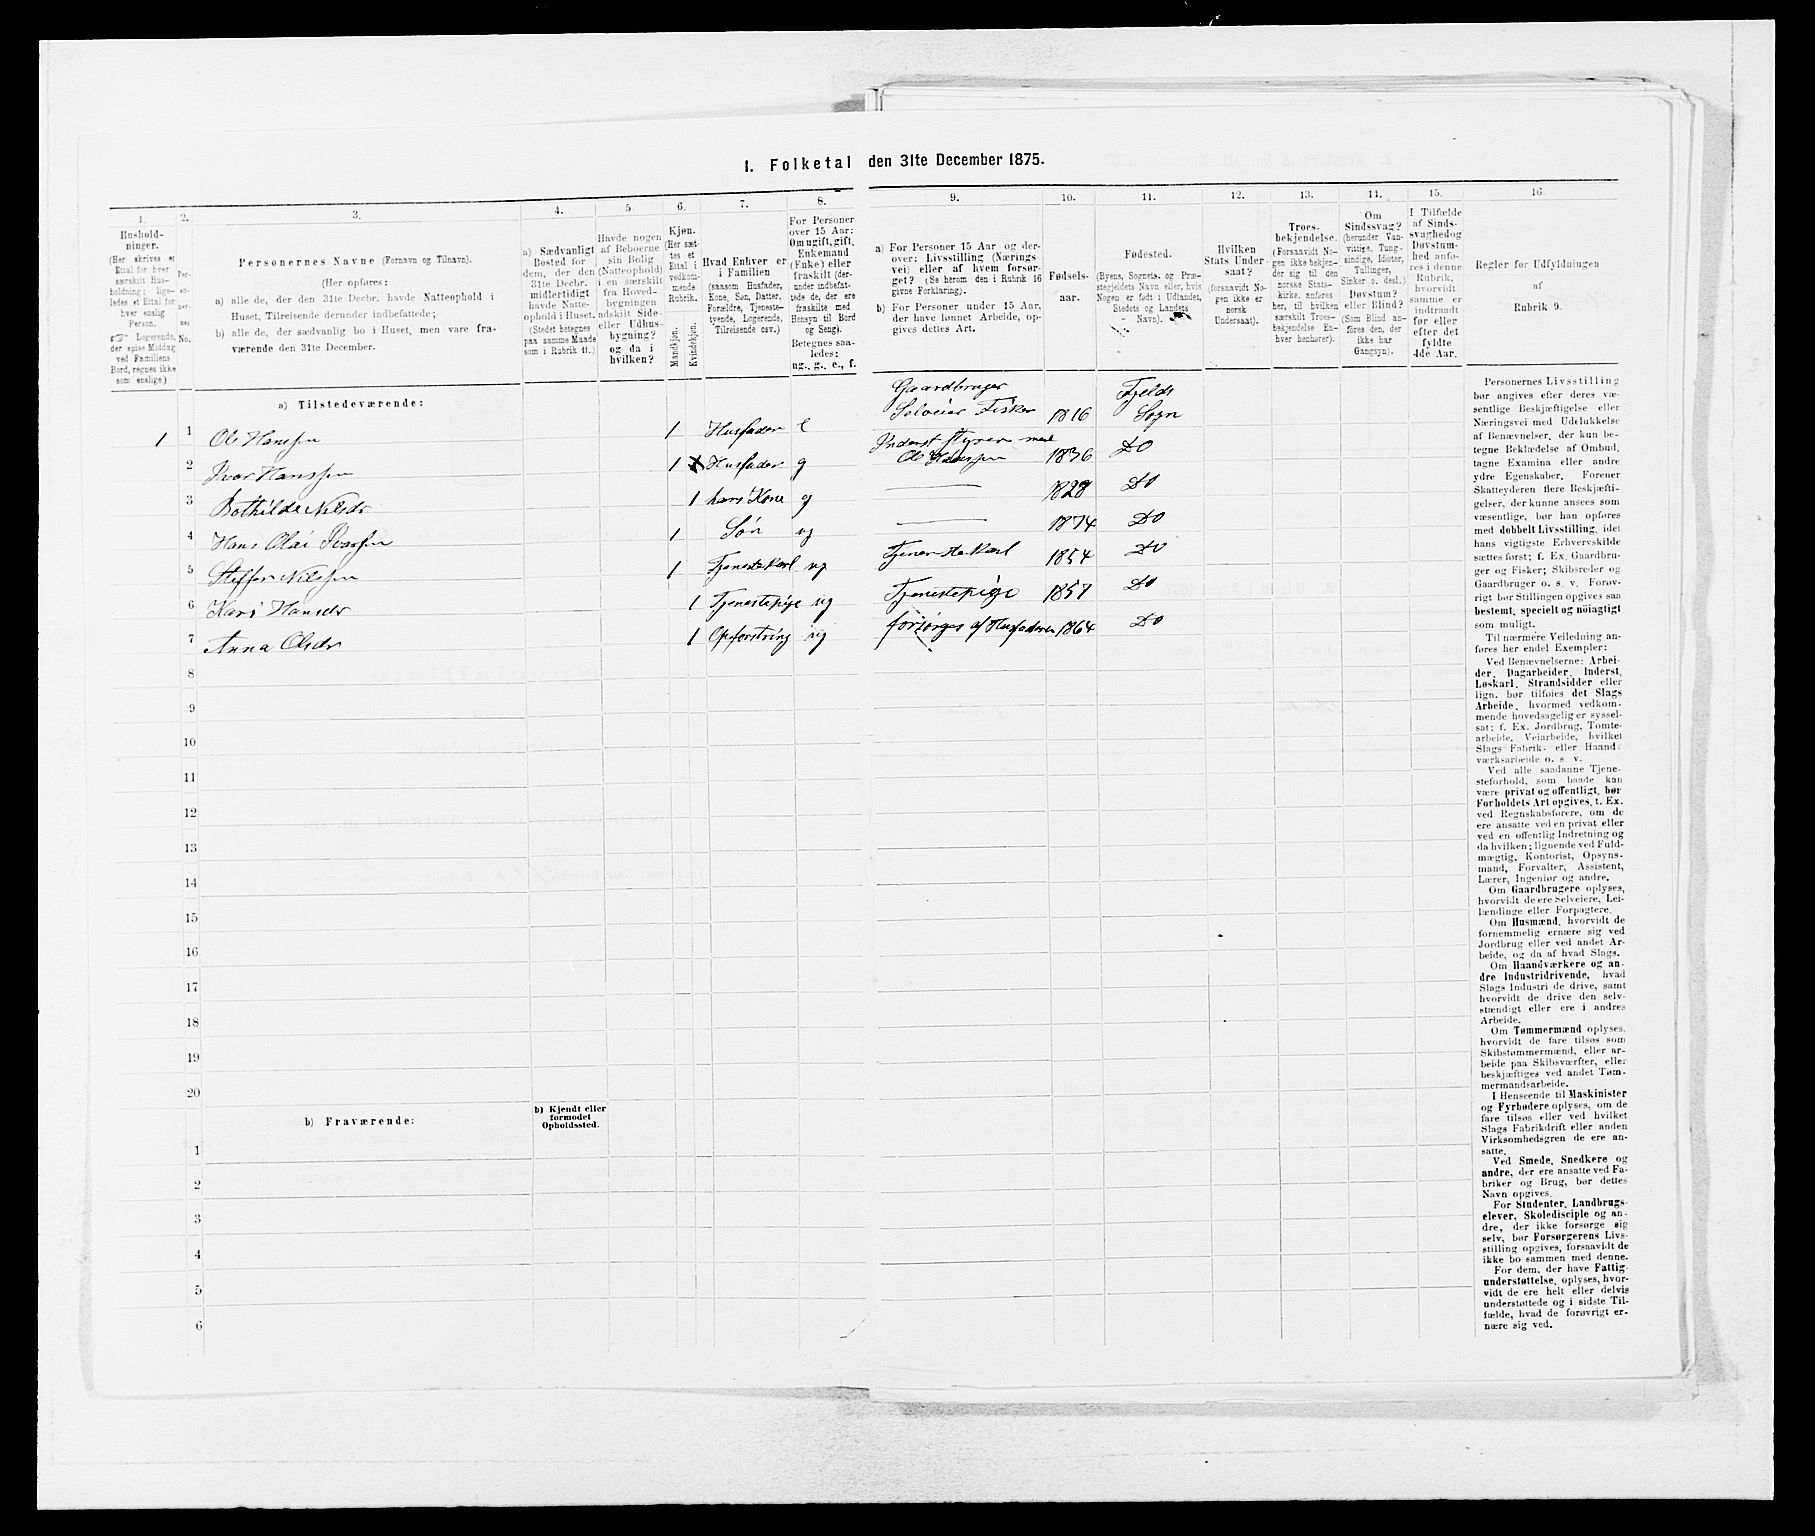 1. Folketal den 31te December 1875.
1. 2. 3. 4. 5. 6. 7. 8. 9. 10. 11. 12. 13. 14. 15. 16.
Hushold-
ninger.
(Her skrives et
Ettal for hver
særskilt Hus-
holdning; lige-
ledes et Ettal for
hver enslig
Person.
☞ Logerende,
der spise Middag
ved Familiens
Bord, regnes ikke
som enslige)
Per-
so-
ner-
nes
No.
Personernes Navne (Fornavn og Tilnavn).
(Her opføres:
a) alle de, der den 31te Decbr. havde Natteophold i
Huset, Tilreisende derunder indbefattede;
b) alle de, der sædvanlig bo i Huset, men vare fra-
værende den 31te December.
a) Sædvanligt
Bosted for
dem, der den
31te Decbr.
midlertidigt
havde Natte-
ophold i Huset.
(Stedet betegnes
paa samme Maade
som i Rubrik 11.)
Havde nogen
af Beboerne
sin Bolig
(Natteophold)
i en særskilt
fra Hoved-
bygningen
adskilt Side-
eller Udhus-
bygning?
og da i
hvilken?
Kjøn.
(Her sæt-
tes et
Ettal i
vedkom-
mende
Rubrik.
Mandkjøn.
Kvindekjøn.
Hvad Enhver er
i Familien
(saasom Husfader,
Kone, Søn, Datter,
Forældre, Tjeneste-
tyende, Logerende,
Tilreisende osv.)
For Personer
over 15 Aar:
Om ugift, gift,
Enkemand
(Enke) eller
fraskilt (der-
under indbefat-
tede de, der ere
fraskilte med
Hensyn til Bord
og Seng).
Betegnes saa-
ledes:
ug., g., e., f.
a) For Personer 15 Aar og der-
over: Livsstilling (Nærings
vei) eller af hvem forsør-
get? (Se herom den i Rubrik 16
givne Forklaring).
b) For Personer under 15 Aar,
der have lønnet Arbeide, op-
gives dettes Art.
Fødsels-
aar.
Fødested.
(Byens, Sognets, og Præ-
stegjeldets Navn eller, hvis
Nogen er født i Udlandet,
Stedets og Landets
Navn).
Hvilken
Stats Under-
saat?
(forsaavidt No-
gen ikke er
norsk
Undersaat).
Troes-
bekjendelse.
(Forsaavidt No-
gen ikke bekjen-
der sig til den
norske Stats-
kirke, anføres
her, til hvilken
særskilt Troes-
bekjendelse En-
hver henhører).
Om
Sindssvag?
(herunder Van-
vittige, Tung-
sindige, Idioter,
Tullinger,
Sinker o. desl.)
Døvstum?
eller Blind?
(Som Blind an-
føres den, der
ikke har
Gangsyn).
I Tilfælde
af Sinds-
svaghed og
Døvstum-
hed anfø-
res i denne
Rubrik,
hvorvidt
samme er
indtraadt
før eller
efter det
fyldte
4de Aar.
Regler for Udfyldningen
af
Rubrik 9.
a) Tilstedeværende:
1 1 Ole Hanssen 1 Husfader e Gaardbruger Selveier Fisker 1816 Fjelds Sogn
2 Ivar Hanssen 1 Husfader g Inderst styrer med Ole Hanssen 1836 Do
3 Bothilde Nilsdr 1 hans Kone g 1828 Do
4 Hans Olai Ivarssen 1 Søn ug 1874 Do
5 Steffen Nilssen 1 Tjenestekarl ug Tjenestekarl 1854 Do
6 Kari Hansdr 1 Tjenestepige ug Tjenestepige 1857 Do
7 Anna Olsdr 1 Opfostring ug forsørges af Husfaderen 1864 Do
8
9
10
11
12
13
14
15
16
17
18
19
20
b) Fraværende:
b) Kjendt eller
formodet
Opholdssted.
1
2
3
4
5
6
Personernes Livsstilling
bør angives efter deres væ-
sentlige Beskjæftigelse eller
Næringsvei med Udelukkelse
af Benævnelser, der kun be-
tegne Beklædelse af Ombud,
tagne Examina eller andre
ydre Egenskaber. Forener
Skatteyderen flere Beskjæfti-
gelser, der kunne ansees som
væsentlige, bør han opføres
med dobbelt Livsstilling, idet
hans vigtigste Erhvervskilde
sættes først; f. Ex. Gaardbru-
ger og Fisker; Skibsreder og
Gaardbruger o. s. v. Forøv-
rigt bør Stillingen opgives saa
bestemt, specielt og nöiagtigt
som muligt.
Til nærmere Veiledning an-
føres her endel Exempler:
Ved Benævnelserne: Arbei-
der, Dagarbeider, Inderst,
Løskarl, Strandsidder eller
lign. bør tilføies det Slags
Arbeide, hvormed vedkom-
mende hovedsagelig er syssel-
sat; f. Ex. Jordbrug, Tomte-
arbeide, Veiarbeide, hvilket
Slags Fabrik- eller Haand-
værksarbeide o. s. v.
Ved alle saadanne Tjene-
steforhold, som baade kan
være privat og offentligt, bør
Forholdets Art opgives, t. Ex.
ved Regnskabsførere, om de
ere ansatte ved en privat eller
ved en offentlig Indretning og
da hvilken; lignende ved Fuld-
mægtig, Kontorist, Opsyns-
mand, Forvalter, Assistent,
Lærer, Ingeniør og andre.
Om Gaardbrugere oplyses,
hvorvidt de ere Selveiere, Lei-
lændinge eller Forpagtere.
Om Husmænd, hvorvidt de
fornemmelig ernære sig ved
Jordbrug eller ved andet Ar-
beide, og da af hvad Slags.
Om Haandværkere og an-
dre Industridrivende, hvad
Slags Industri de drive, samt
hvorvidt de drive den selv-
stændigt eller ere i andres
Arbeide.
Om Tømmermænd oplyses,
hvorvidt de fare tilsøs som
Skibstømmermænd, eller ar-
beide paa Skibsværfter, eller
beskjæftiges ved andet Tøm-
mermandsarbeide.
I Henseende til Maskinister
og Fyrbødere oplyses, om de
fare tilsøs eller ved hvilket
Slags Fabrikdrift eller anden
Virksomhedsgren de ere an-
satte.
Ved Smede, Snedkere og
andre, der ere ansatte ved Fa-
briker og Brug, bør dettes
Navn opgives.
For Studenter, Landbrugs-
elever, Skoledisciple og an-
dre, der ikke forsørge sig
selv, bør Forsørgerens Livs-
stilling opgives, forsaavidt de
ikke bo sammen med denne.
For dem, der have Fattig-
understøttelse, oplyses, hvor-
vidt de ere helt eller delvis
understøttede og i sidste Til-
fælde, hvad de forøvrigt er-
nære sig ved.